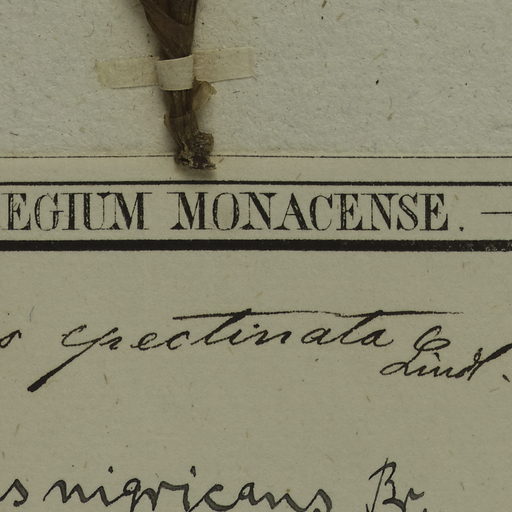 EGIUM MONACENSE. —
s pectinata
Lindl.
s nigricans Br.